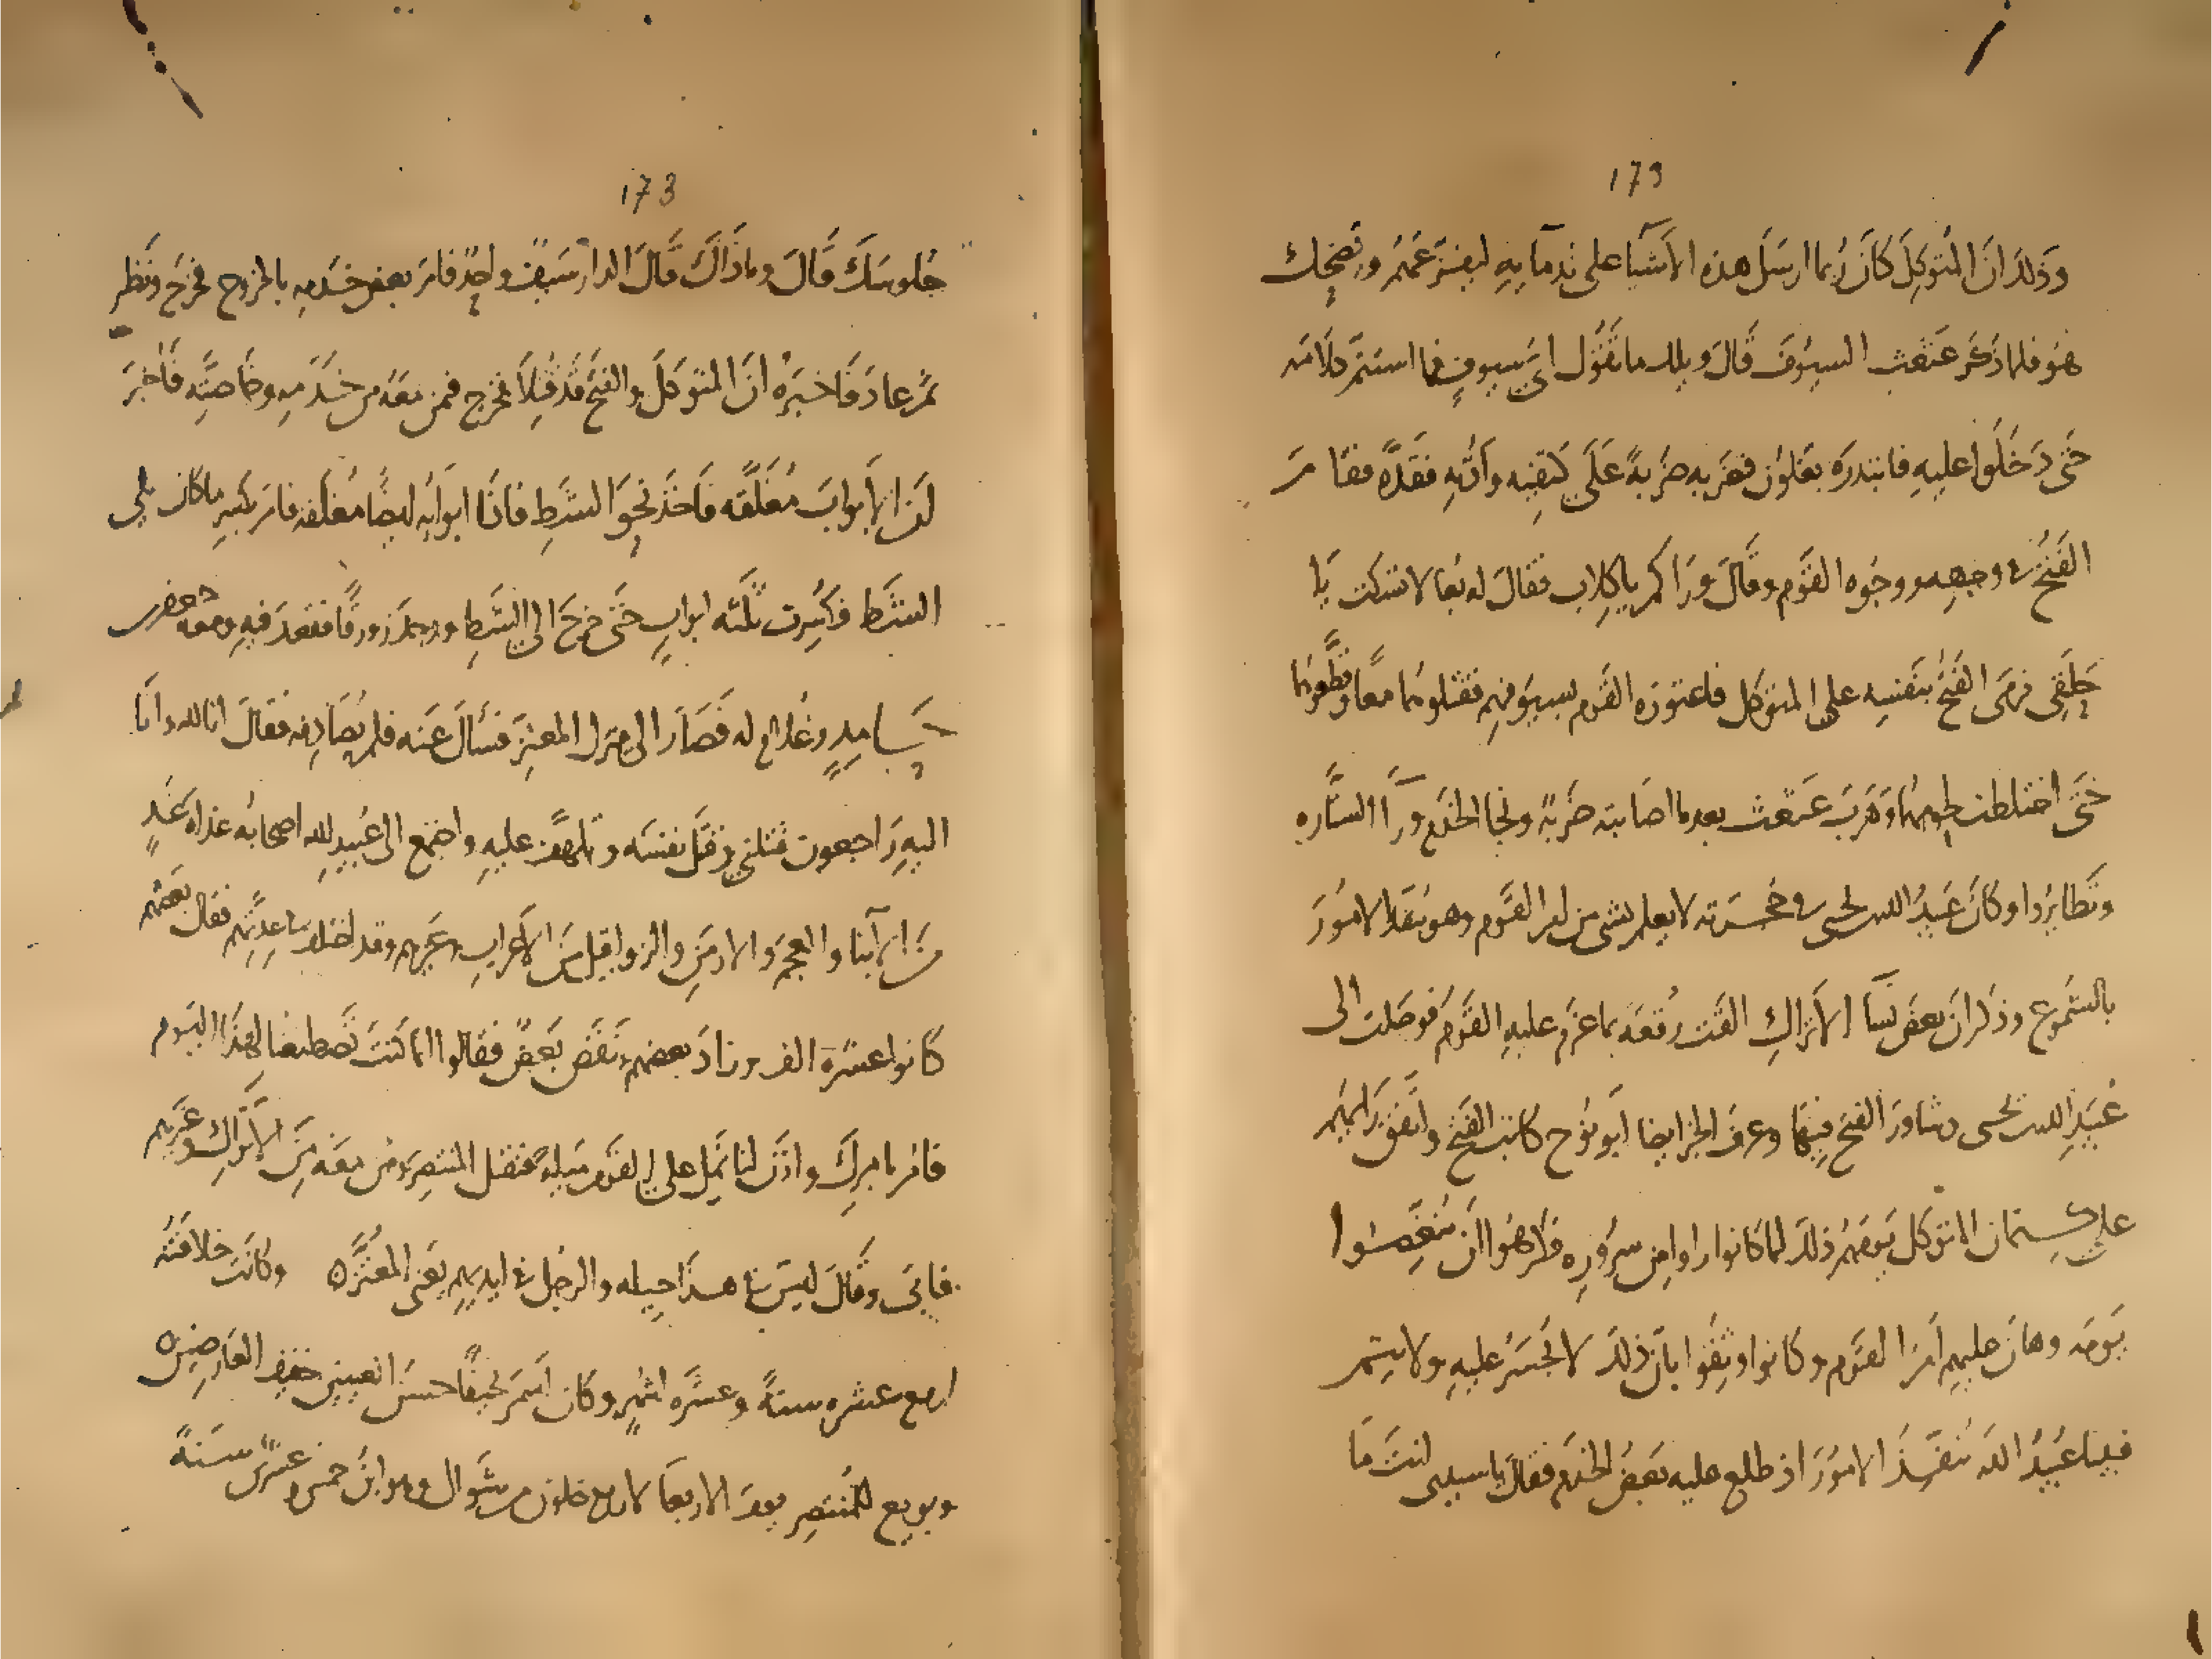 173
وَذلكَ انَ المُتوَكِلَ كانَ رُبما ارسَلَ هذه الاشيَا علَى نُدمآيهِ ليفزعَهُم ويَضحك
هوَ فلما ذكر عَثعَث السيُوفَ قالَ ويلك ما تَقُول اىّ سيوفٍ فما استتم كلامَه
حَتى دَخلُوا عليهِ فابتدرَه بغلون فضَربه ضَربةً عَلَى كتفِه واُذنهِ فقَدّه فقامَ
الفَتحُ في وجههِم ووجُوه القوم وقالَ ورَاكم يا كِلاب فقالَ له بُغا لا تسكت يَا
حَلَقِى فرمَى الفَتحُ بنَفسِه على المتوكل فاعتورَه القَوم بسيُوفهِم فقتلوهُما معاً وقطّعوُهُما
حتى اختلطت لحومهُمُا وَهَربَ عَثعَث بعدما اصَابته ضَربةٌ ونجا الخدَم ورَآ الستّاره
وتَطايرُوا وكانَ عُبيدُ الله بن يحيى في حُجرته لا يعلم بشى من امر القَوم وهو ينفذ الامُورَ
بالشمُوع وذكر انَ بعضَ نسآ الاتراكِ القَت رُقعَه بما عزم عليهِ القَومُ فوَصَلت الى
عُبَيدِ الله بن يحيى وشاورَ الفتحَ فِيهَا وعرفَ الخبر ايضا ابو نوُح كاتب الفَتح واتفق رَايهُم
على كتمان المتوكل يَومَهُم ذلكَ لما كانوا راوا من سرُورِه فكرهُوا ان يُنغّصُوا
يَومَه وهانَ عليهِم اَمرُ القَوم وكانوا وثِقُوا بان ذلكَ لا يجسرُ عليهِ ولا يتم
فبينا عُبيدُ الله يُنفّذُ الامُورَ اذ طلع عليه بَعضُ الخدَم فقالَ يا سيدى لِمَ
173
جُلوسَكَ قَالَ وما ذَاكَ قَالَ الدار سَيفٌ واحِدٌ فامَر بعضَ خدَمه بالخروج فخرجَ ونَظر
ثمَّ عادَ فَاخبَرَهُ انَ المتوكلَ والفتحَ قد قُتِلاَ فخرج فيمن معَهُ من خَدَمِه وخاصَّتِه فَأخبرَ
انَ الابوابَ مُغلّقه فَاخذَ نحوَ الشطِ فاذَا ابوابُه ايضًا مُغلّقه فامَر بكسرِ ما كان يلي
الشَط فكُسِرت ثلثَه ابوابٍ حَتى خرجَ الى الشَطِ ووجدَ زورقًا فقعَدَ فيهِ ومعه جعفر بن
حَامدٍ وغُلامٌ له فصَارَ الى مَنزل المعتزّ فسَألَ عنَه فلم يُصَادِفه فقالَ انا لله وانَا
اليهِ رَاجعون قَتلني وقَتَل نفسَه وتلهّف عليهِ واجتمع الى عُبيدِ الله اصحابُه غداه غدٍ
منَ الابنا والعجَم والارمَنِ والزواقيل منَ الاَعرابِ وغيرهِم وقد اختلف في عِدتِهم فقال بَعضُهم
كانوا عشرَة الف وزادَ بعضهم ونَقّصَ بَعضٌ فقالوا انما كنتَ تصطنعنا لهَذا اليَوم
فامُر بامركَ واذَن لنا نَمِل على القَوم مَيله فنقتل المنتصِر ومَن معَه مِنَ الاتراكِ وغيرهِم
فابَى وقَالَ ليسَ في هذا حِيله والرجُل في ايديهِم يعَنى المُعتَزّه وكانَت خلافتُه
اربع عشره سنةً وعشرَه اشهُرٍ وكان اسمَر نحيفًا حسَن العَينين خفيف العَارضِينه
وبويع للمُنتصِر يومَ الاربعَا لاربعٍ خلون من شَوال وهو ابنُ خمسٍ وعشرين سَنةً